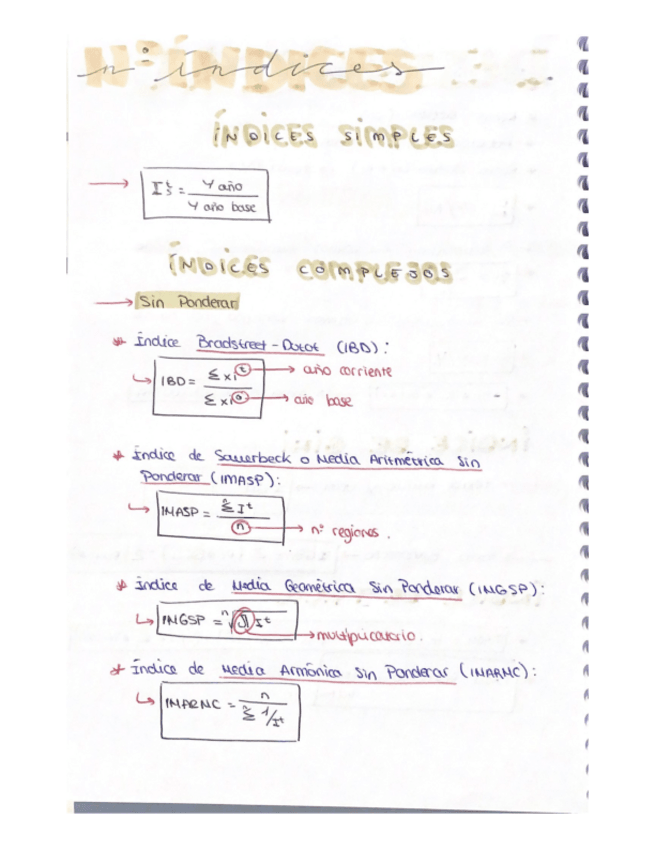 nº índices
ÍNDICES SIMPLES
→ I ᵗ₅ = Y año / Y año base
ÍNDICES COMPLEJOS
→ Sin Ponderar
* Índice Bradstreet-Dutot (IBD):
↳ IBD = Σxiᵗ / Σxi⁰
→ año corriente
→ año base
* Índice de Sauerbeck o Media Aritmétrica Sin
Ponderar (IMASP):
↳ IMASP = Σⁿ Iᵗ / n → nº regiones.
* Índice de Media Geométrica Sin Ponderar (IMGSP):
↳ IMGSP = ⁿ√∏ Iᵗ
→ multiplicatorio.
* Índice de Media Armónica Sin Ponderar (IMARMC):
↳ IMARMC = n / Σⁿ 1/Iᵗ